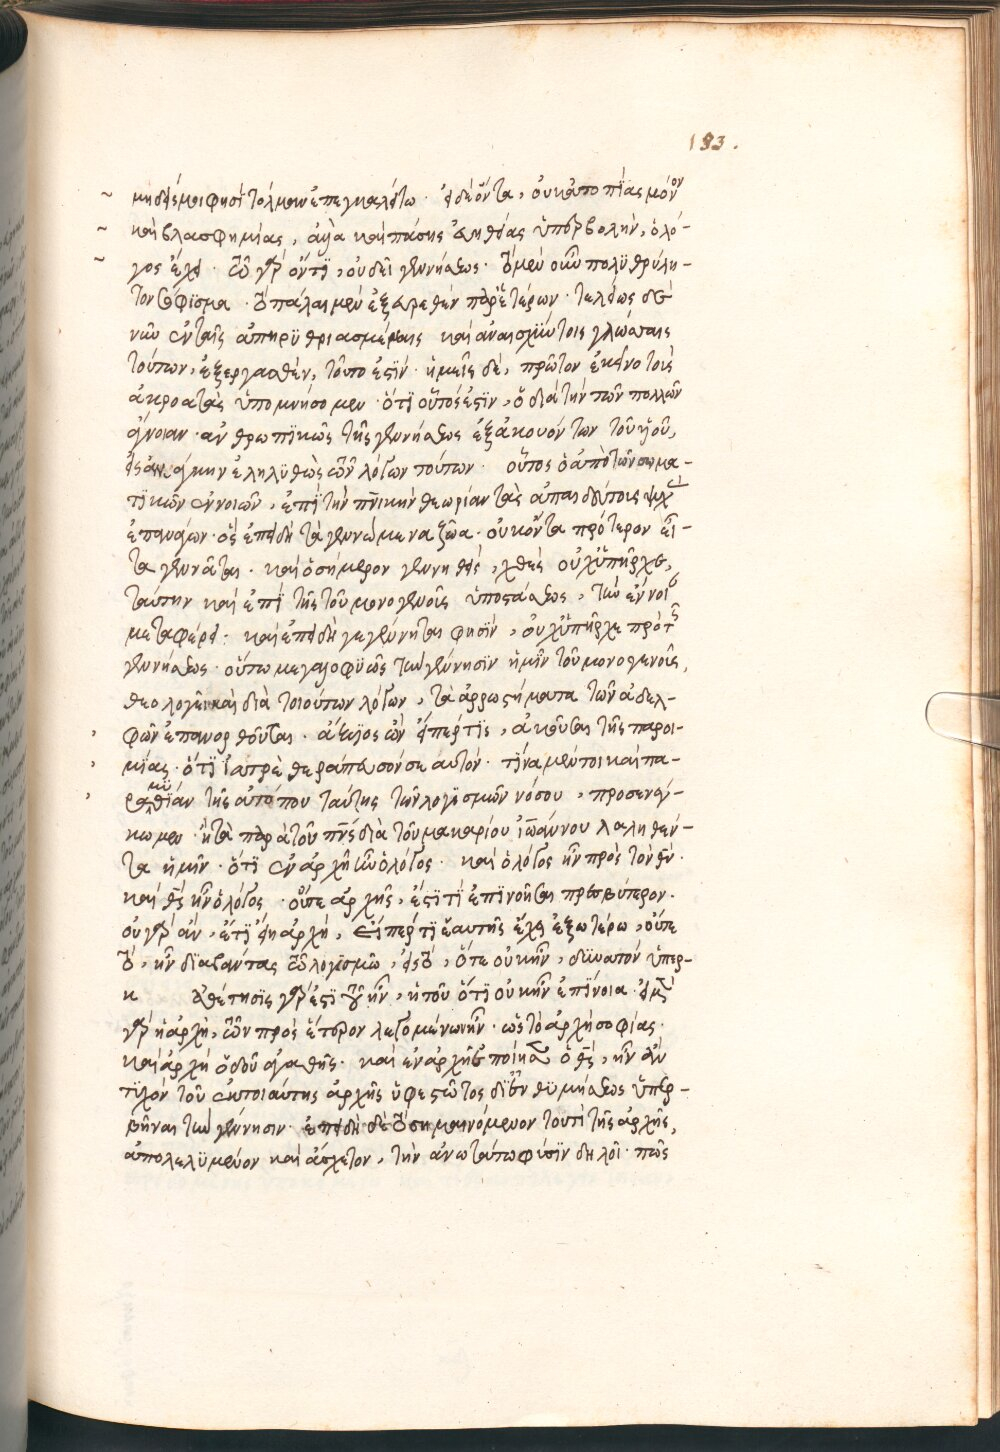 183.
μηδὲ ἐμοί φησὶ τολμᾶν ἐπεγκαλείτω· εἰ δὲ ὄντα, οὐκ ἀτοπίας μόνον
καὶ βλασφημίας, ἀλλὰ καὶ πάσης εὐηθείας ὑπερβολὴν, ὁ λό-
γος ἔχει· τῶ γὰρ ὄντι, οὐδεῖ γεννήσεως· τὸ μὲν οὖν πολϋθρύλη-
τον σόφισμα· τὸ πάλαι μὲν ἐξευρεθὲν παρ' ἑτέρων· τελείως δὲ
νῦν ἐν ταῖς ἀπηρϋθριασμέναις καὶ ἀναισχύντοις γλώσσαις
τούτων, ἐξεργασθὲν, τοῦτο ἐστίν· ἡμεῖς δὲ, πρῶτον ἐκεῖνο τοὺς
ἀκροατὰς ὑπομνήσομεν· ὅτι οὗτός ἐστιν, ὁ διὰ τὴν τῶν πολλῶν
ἄνοιαν ἀνθρωπικῶς τῆς γεννήσεως ἐξακουόντων τοῦ υἱοῦ,
εἰς ἀνάγκην ἐληλυθὼς τῶν λόγων τούτων· οὗτος ὁ ἀπὸ τῶν σωμα-
τικῶν ἐννοιῶν, ἐπὶ τὴν πνικὴν θεωρίαν τὰς ἀπαιδεύτους ψυχὰς
ἐπανάγων· ὃς ἐπειδὴ τὰ γεννώμενα ζῶα· οὐκ ὄντα πρότερον εἶ-
τα γεννᾶται· καὶ ὁ σήμερον γεννηθεὶς, χθὲς οὐχ ὑπῆρχε,
ταύτην καὶ ἐπὶ τῆς τοῦ μονογενοῦς ὑποστάσεως, τὴν ἔννοιαν
μεταφέρει· καὶ ἐπειδὴ γεγέννηται φησὶν, οὐχ ὑπῆρχε πρὸ τῆς
γεννήσεως· οὕτω μεγαλοφυῶς τὴν γέννησιν ἡμῖν τοῦ μονογενοῦς,
θεολογεῖ καὶ διὰ τοιούτων λόγων, τὰ ἀρρωστήματα τῶν ἀδελ-
φῶν ἐπανορθοῦται· ἄξιος ὢν εἴπερ τις, ἀκοῦσαι τῆς παροι-
μίας· ὅτι ἰατρὲ θεράπευσόν σεαυτόν· τίνα μέντοι καὶ πα-
ραμυθίαν τῆς ἀτόπου ταύτης τῶν λογισμῶν νόσου, προσενέγ-
κωμεν· ἢ τὰ παρὰ τοῦ πνς διὰ τοῦ μακαρίου ἰωάννου λαληθέν-
τα ἡμῖν· ὅτι ἐν ἀρχῆ ἦν ὁ λόγος· καὶ ὁ λόγος ἦν πρὸς τὸν θν·
καὶ θς ἦν ὁ λόγος· οὔτε ἀρχῆς, ἐστί τι ἐπινοῆσαι πρεσβύτερον·
οὐ γὰρ ἂν, ἔτι εἴη ἀρχὴ, εἴπερ τι ἑαυτῆς ἔχει ἐξωτέρω, οὔτε
τὸ, ἦν διαβάντας τῶ λογισμῶ, εἰς τὸ, ὅτε οὐκ ἦν, δυνατὸν ὑπερ-
κ ἀθέτησις γάρ ἐστι τοῦ ἦν, ἡ τοῦ ὅτι οὐκ ἦν ἐπίνοια· εἰ μὲν
γὰρ ἡ ἀρχὴ, τῶν πρὸς ἕτερον λεγομένων ἦν· ὡς τὸ ἀρχὴ σοφίας·
καὶ ἀρχὴ ὁδοῦ ἀγαθῆς· καὶ ἐν ἀρχῆ ἐποίησεν ὁ θς, ἦν ἂν
τυχὸν τοῦ ἐκ τοιαύτης ἀρχῆς ὑφεστῶτος δι' ἐνθυμήσεως ὑπερ-
βῆναι τὴν γέννησιν· ἐπειδὴ δὲ τὸ σημαινόμενον τουτὶ τῆς ἀρχῆς,
ἀπολελυμένον καὶ ἄσχετον, τὴν ἀνωτάτω φύσιν δηλοῖ· πῶς